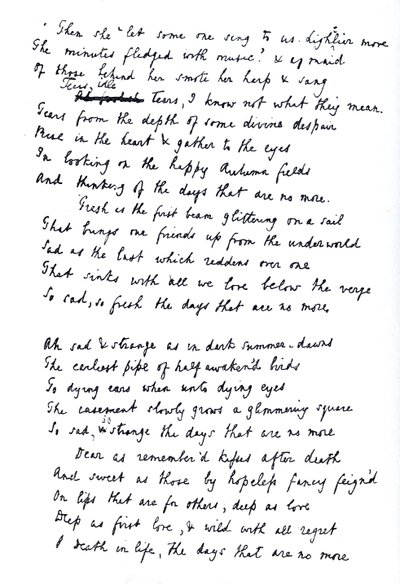 " Then she "let some one sing to us. lightlier move
The minutes fledged with music." & a maid
Of those behind her smote her harp & sang
Tears, idle
Ah foolish Tears, I know not what they mean.
Tears from the depth of some divine despair
Rise in the heart & gather to the eyes
In looking on the happy Autumn fields
And thinking of the days that are no more.
Fresh is the first beam glittering on a sail
That brings one friends up from the underworld
Sad as the last which reddens over one
That sinks with all we love below the verge
So sad, so fresh the days that are no more.
Ah sad & strange as in dark summer-dawns
The earliest pipe of half awaken'd birds
To dying ears when unto dying eyes
The casement slowly grows a glimmering square
So sad, so strange the days that are no more
Dear as remember'd kisses after death
And sweet as those by hopeless fancy feign'd
On lips that are for others, deep as love
Deep as first love, & wild with all regret
O death in life, the days that are no more